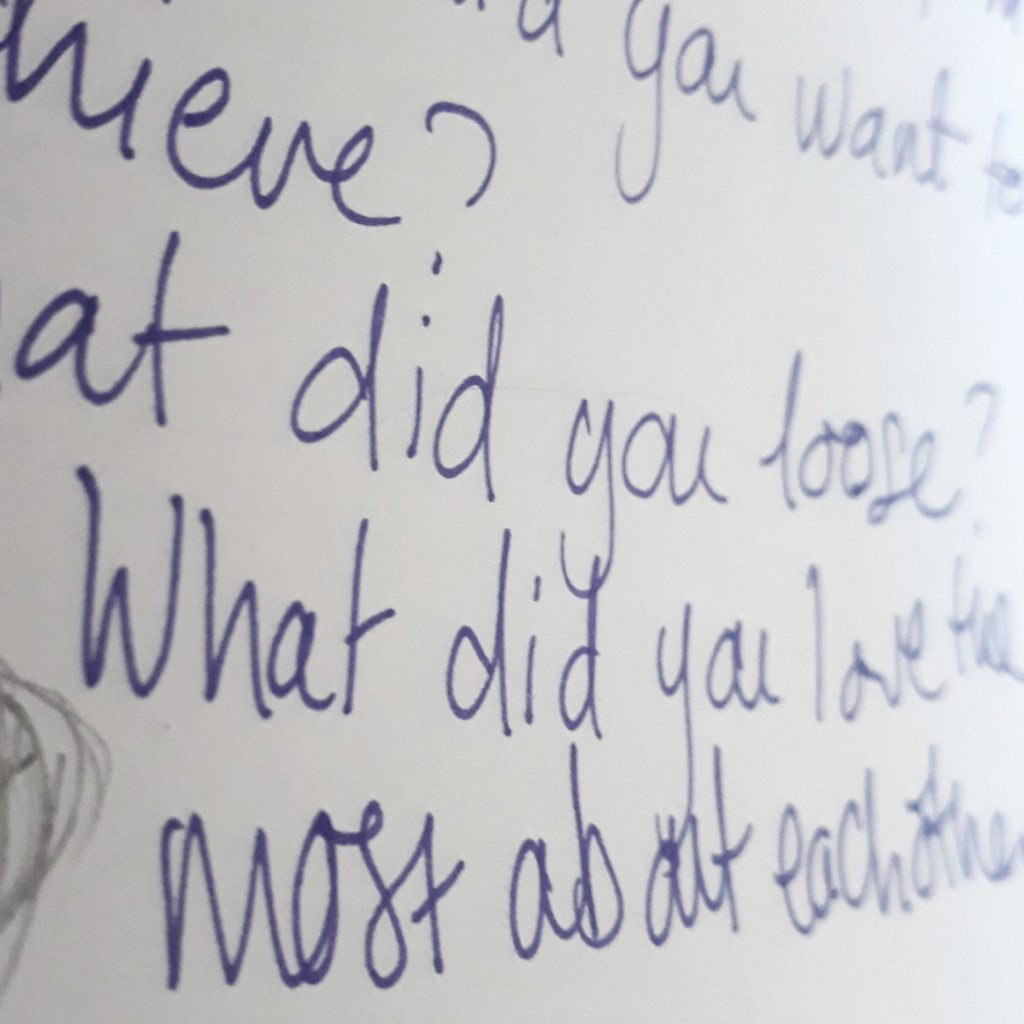 you want to
hieve?
at did you loose?
What did you love the
most about each other